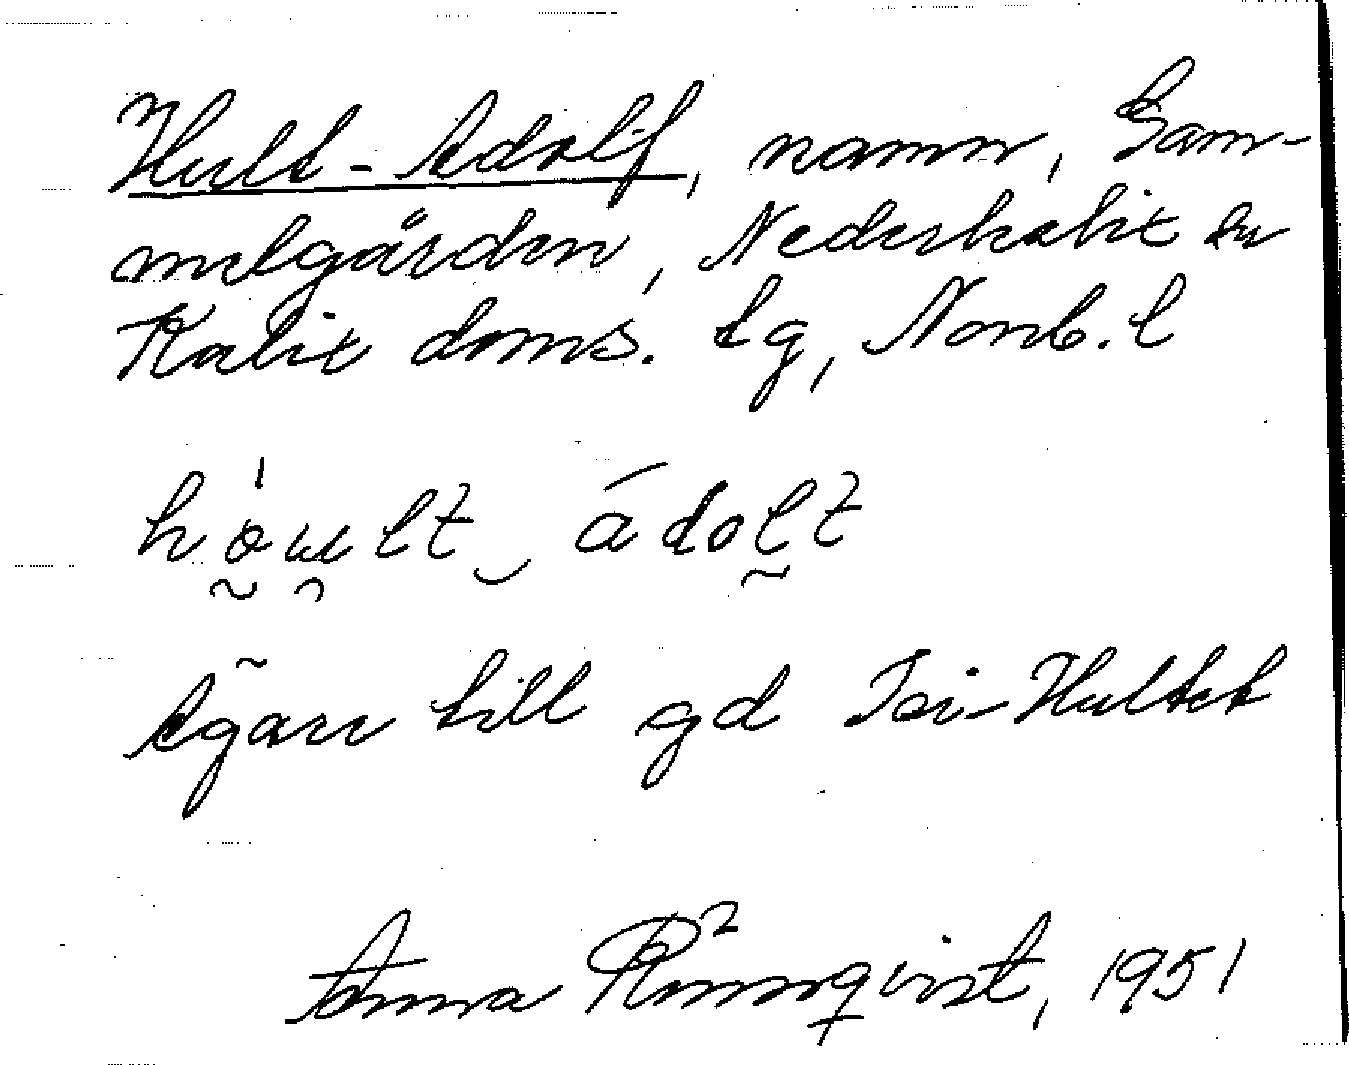 Hult-Adolf, namn, Gam-
melgården, Nederkalix sn
Kalix doms. tg, Norrb. l
hó̰u̯lt‿ádol̰t
Ägare till gd Isi-Hultet
Anna Rönnqvist, 1951